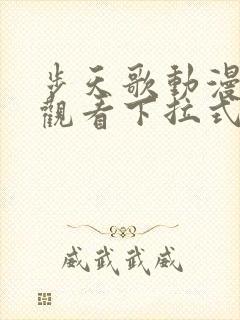 步天歌動漫
觀看下拉式
威武武威